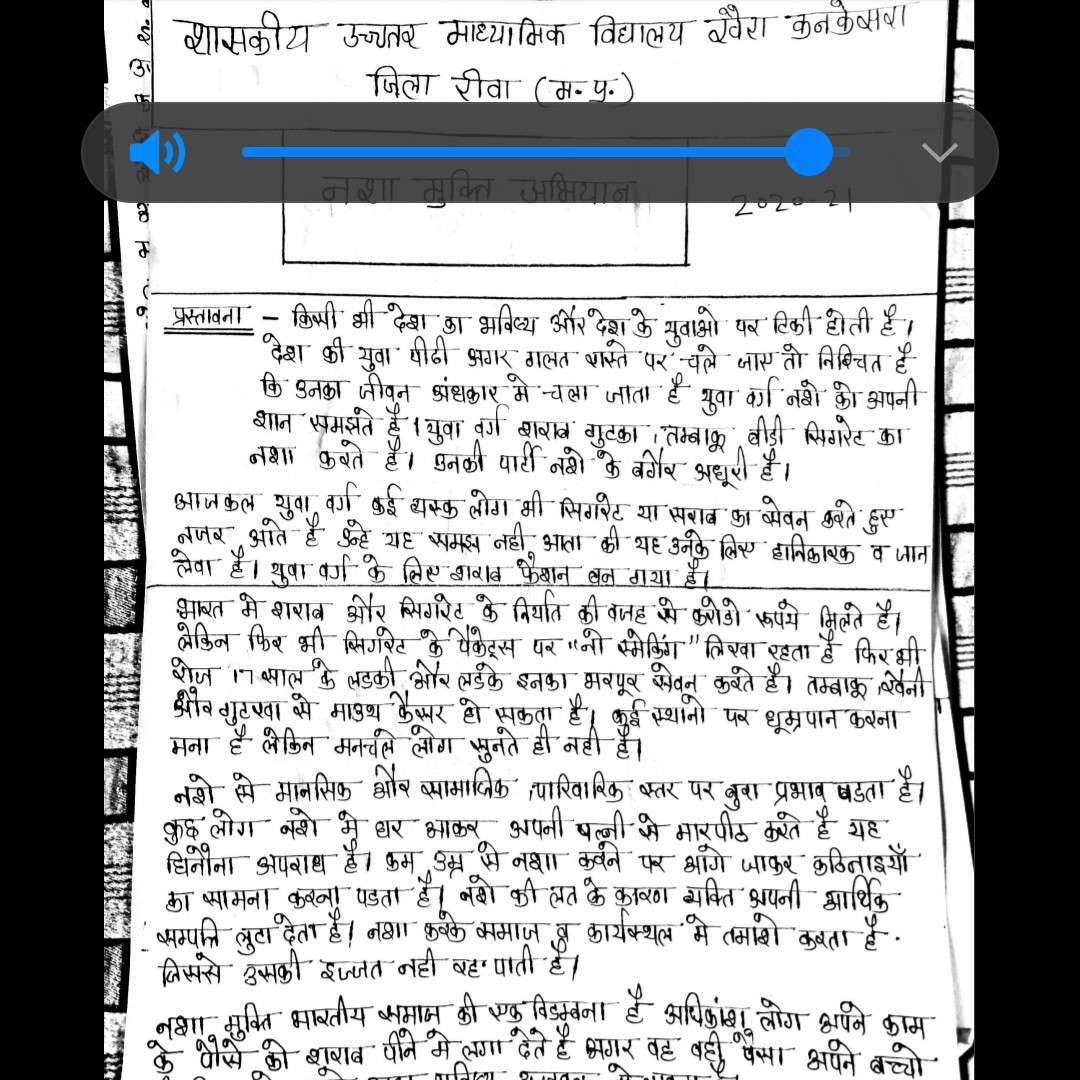 शासकीय उच्चतर माध्यामिक विद्यालय खैरा कनकेसरा
जिला रीवा (म. प्र.)
नशा मुक्ति अभियान
2020-21
प्रस्तावना - किसी भी देश का भविष्य और देश के युवाओ पर टिकी होती है।
देश की युवा पीढी अगर गलत रास्ते पर चले जाए तो निश्चित है
कि उनका जीवन अंधकार मे चला जाता है युवा वर्ग नशे को अपनी
शान समझते है। युवा वर्ग शराब गुटका, तम्बाकू बीडी सिगरेट का
नशा करते है। उनकी पार्टी नशे के बगैर अधूरी है।
आजकल युवा वर्ग कई यस्क लोग भी सिगरेट या सराब का सेवन करते हुए
नजर आते है उन्हे यह समझ नही आता की यह उनके लिए हानिकारक व जान
लेवा है। युवा वर्ग के लिए शराब फैशन बन गया है।
भारत मे शराब और सिगरेट के निर्यात की वजह से करोडो रूपये मिलते है।
लेकिन फिर भी सिगरेट के पैकेट्स पर "नो स्मेकिंग" लिखा रहता है फिर भी
रोज 17 साल के लडकी और लडके इनका भरपूर सेवन करते है। तम्बाकू, खैनी
और गुटखा से माउथ कैंसर हो सकता है। कई स्थानो पर धूम्रपान करना
मना है लेकिन मनचले लोग सुनते ही नही है।
नशे से मानसिक और सामाजिक, पारिवारिक स्तर पर बुरा प्रभाव पडता है।
कुछ लोग नशे मे घर आकर अपनी पत्नी से मारपीठ करते है यह
घिनौना अपराध है। कम उम्र से नशा करने पर आगे जाकर कठिनाइयाँ
का सामना करना पडता है। नशे की लत के कारण व्यक्ति अपनी आर्थिक
सम्पत्ति लुटा देता है। नशा करके समाज व कार्यस्थल मे तमाशे करता है.
जिससे उसकी इज्जत नही रह पाती है।
नशा मुक्ति भारतीय समाज की एक विडम्बना है अधिकांश लोग अपने काम
के पैसे को शराब पीने मे लगा देते है अगर वह वही पैसा अपने बच्चो